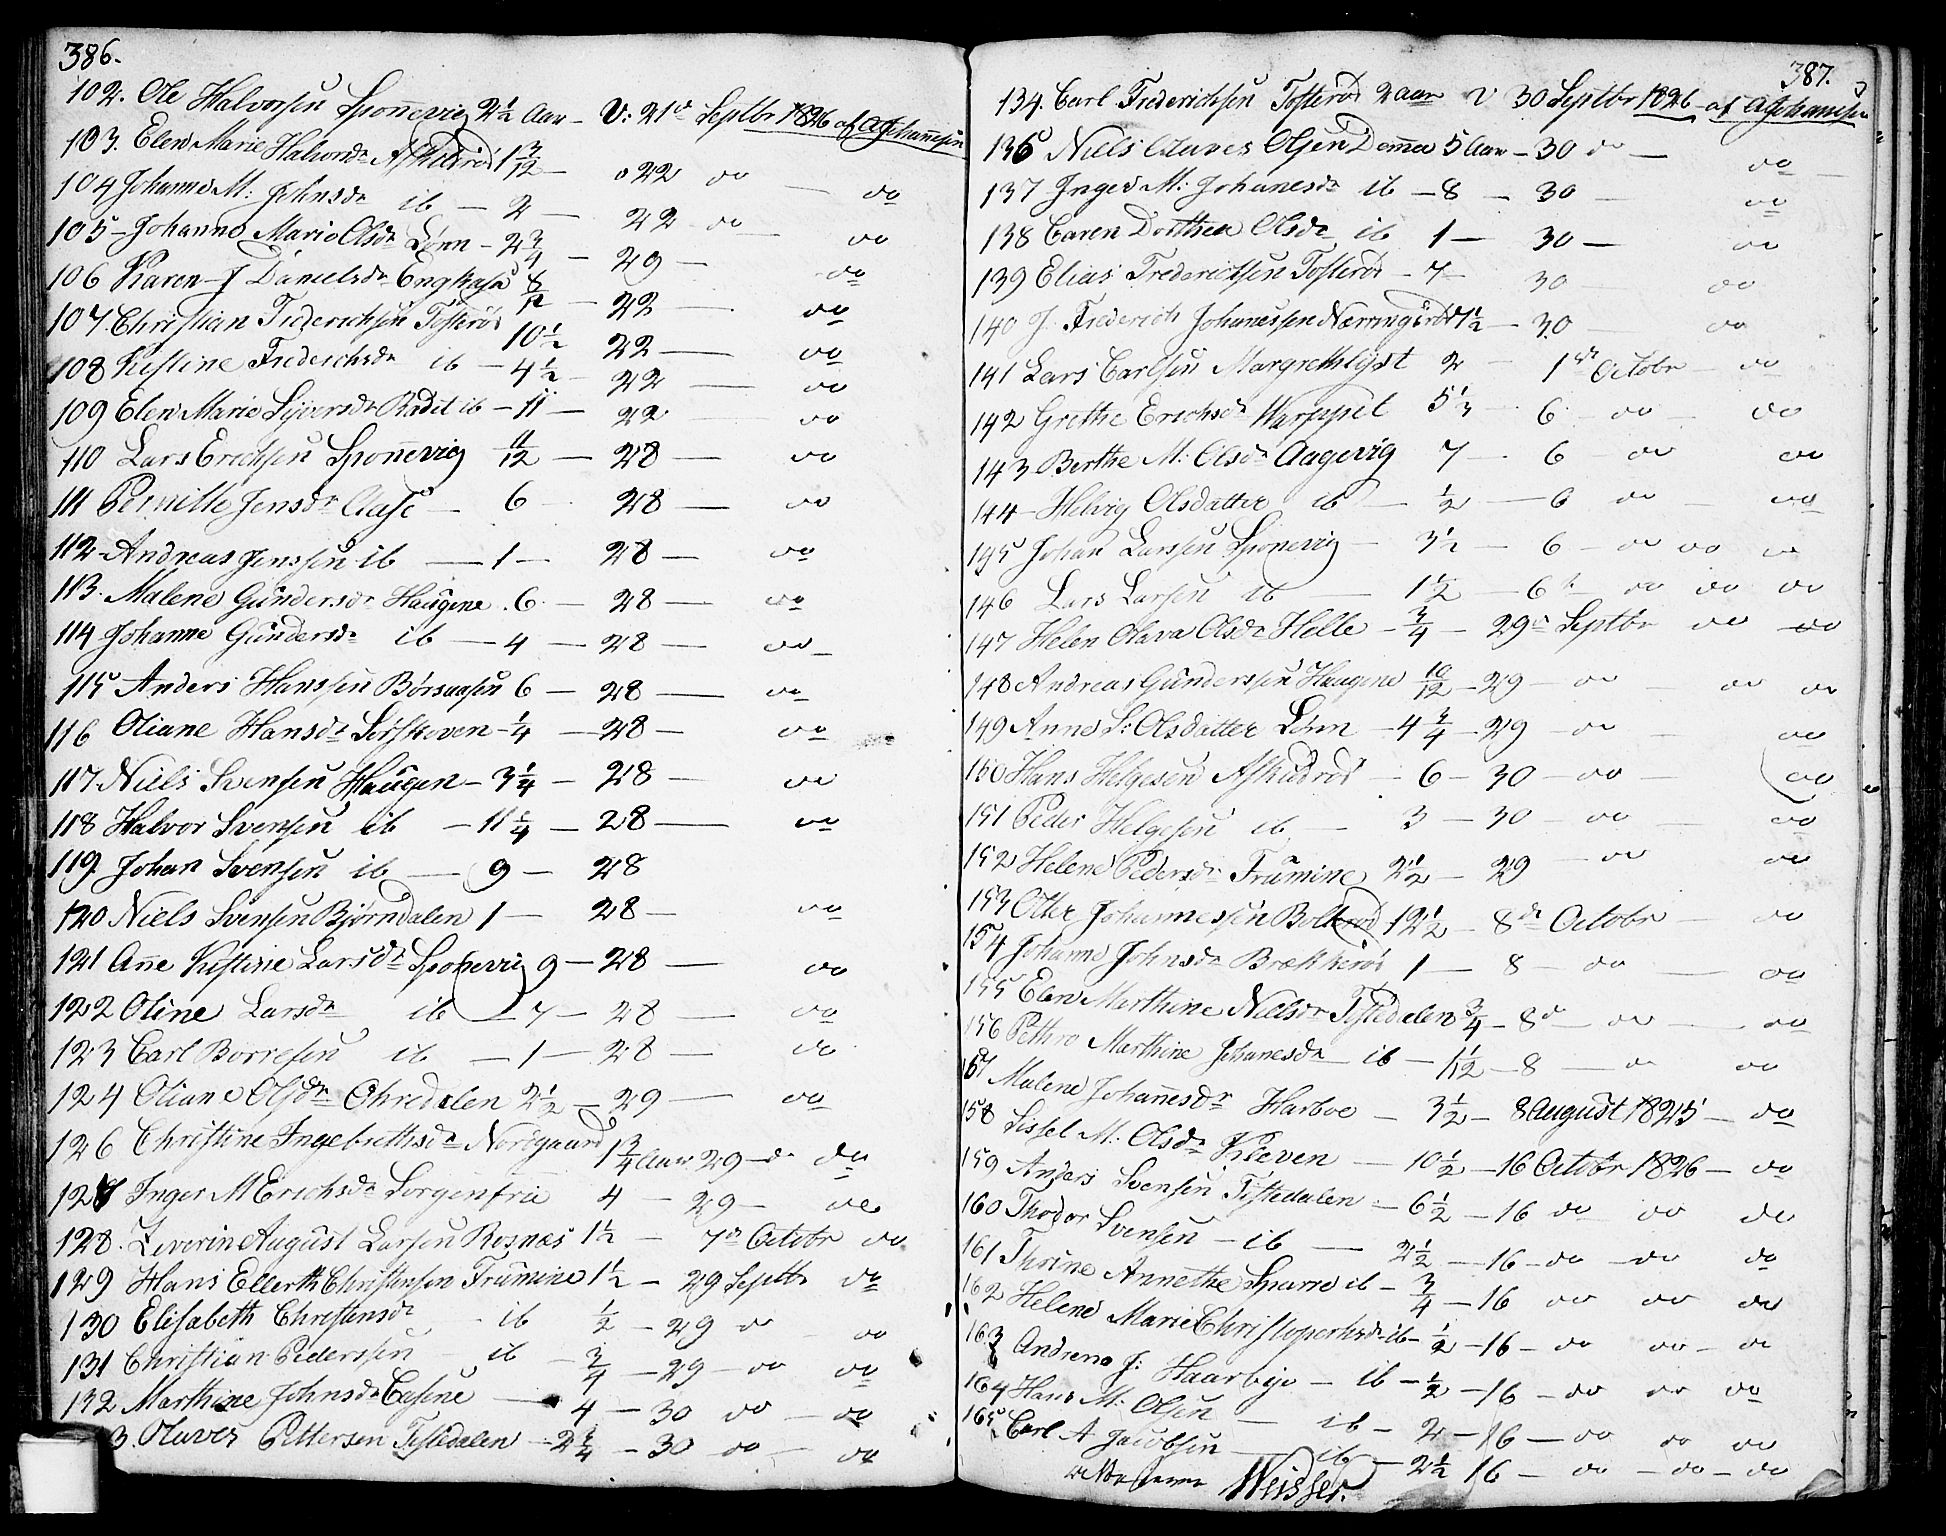 386.
102. Ole Halvorsen Sponnevig 2½ Aar - V: 21de Septbr 1826 af A Johannesen
103. Elen Marie Halvorsdr Askudrød 1 3/12 - 22 do - do
104 Johanne M: Johnsdr ib - 2 - 22 do - do
105 - Johanne Marie Olsdr Lønn - 2¾ - 29 - do
106 Karen J Danielsdr 8/12 - 22 - do
107. Christian Frederichsen Tosterød 10½ 22 - do
108 Kistine Frederichsdr ib - 4½ - 22 - do
109 Elen Marie Syversdr ib - 11 - 22 - do
110 Lars Erichsen Sponnevig 11/12 - 28 - do
111 Pernille Jensdr Aase - 6 - 28 - do
112 - Andreas Jenssen ib - 1 - 28 - do
113. Malene Gundersdr Haugene . 6 - 28 - do
114 Johanne Gundersdr ib - 4 - 28 - do
115 Anders Hanssen Børsaasen 6 - 28 - do
116 Oliane Hansdr Sørskoven - ¼ - 28 - do
117 Niels Svensen Haugen - 3¼ - 28 - do
118 Halvor Svensen ib - 11¼ - 28 - do
119. Johan Svensen ib - 9 - 28
120 Niels Svensen Bjørndalen 1 - 28 - do
121 Anne Kistine Larsdr Sponevig 9 - 28 - do
122 Oline Larsdr ib - 7 - 28 - do
123 Carl Borresen ib - 1 - 28 - do
124 Oliane Olsdr Ohredalen 2½ - 29 - do
126 Christine Ingebrethsdr Norsgaard 1¾ Aar 29 - do do
127 Inger M Erichsdr Sorgenfrie 4 - 29 - do
128. Severin August Larsen Rosnæs 1½ - 7de Octobr do
129 Hans Ellerth Christensen Trumine 1½ - 29 Septbr do
130 Elisabeth Christensdr - ib ½ - 29 do - do
131 Christian Pedersen - ib - ¾ - 29 - do do
132 Marthine Johnsdr - 4 - 30 do - do
3. Olaves Pettersen Tistedalen - 2¾ - 30 do - do
387.
134. Carl Frederichsen Tosterød 2 aar V 30 Septbr 1826 af A Johannesen
136 Niels Olaves Olsen 5 Aar - 30 do - do
137 Inger M: Johanesdr ib - 8 - 30 - do
138 Caren Dorthea Olsdr ib 1 - 30 - do
139 Elias Frederichsen Tosterød - 7 - 30 - do
140 J. Frederich Johannessen 1½ - 30 - do
141 Lars Carlsen Margrethlyst 2 - 1ste Octobr - do
142 Grethe Erichsdr 5½ - 6 - do - do
143 Berthe M: Olsdr Aagevig 7 - 6 do do
144 - Helvig Olsdatter ib - ½ - 6 do - do
145 Johan Larssen Sponevig - 3½ - 6 - do do do
146 Lars Larsen ib - 1½ - 6te do do do
147 Helen Olava Olsdr Helle - ¾ - 29de Septbr do do
148 Andreas Gunderssen Haugene 10/12 - 29 - do - do do
149 Anne S: Olsdatter Lønn - 4¾ - 29 - do - do
150 Hans Helgesen Askudrød - 6 - 30 - do - do
151 Peder Helgesen ib - 3 - 30 - do - do
152 Helene Pedersdr Trumine 2½ - 29 - do do
153 Otter Johannessen Bolterød 12½ - 8de Octobr - do
154 Johanne Johnsdr Brækkerød 1 - 8 - do - do
155 Elen Marthine Nielsdr Tistedalen ¾ - 8de - do - do
156 Pethro Marthine Johanesdr - ib - 1 1/12 - 8 - do do
157 Malene Johannesdr Harboe - 3½ - 8 August 1825 - do
158 Sissel M. Olsdr Kleven - 10½ - 16 Octobr 1826 - do
159 Anders Svensen Tistedalen - 6½ - 16 do do do
160 Thodor Svensen - ib - 2½ - 16 - do - do do
161 Thrine Annethe Sparre ib - ¾ - 16 do do do
162 Helene Marie Christopherhsdr ib - ½ - 16 - do do - do
163 Andrena J: Haarbye - ib - ½ - 16 - do do do
164 Hans M: Olsen - ib - 2 - 16 - do do do
165 Carl A Jacobsen - ib - 2½ 16 - do - do - do
Weisser.